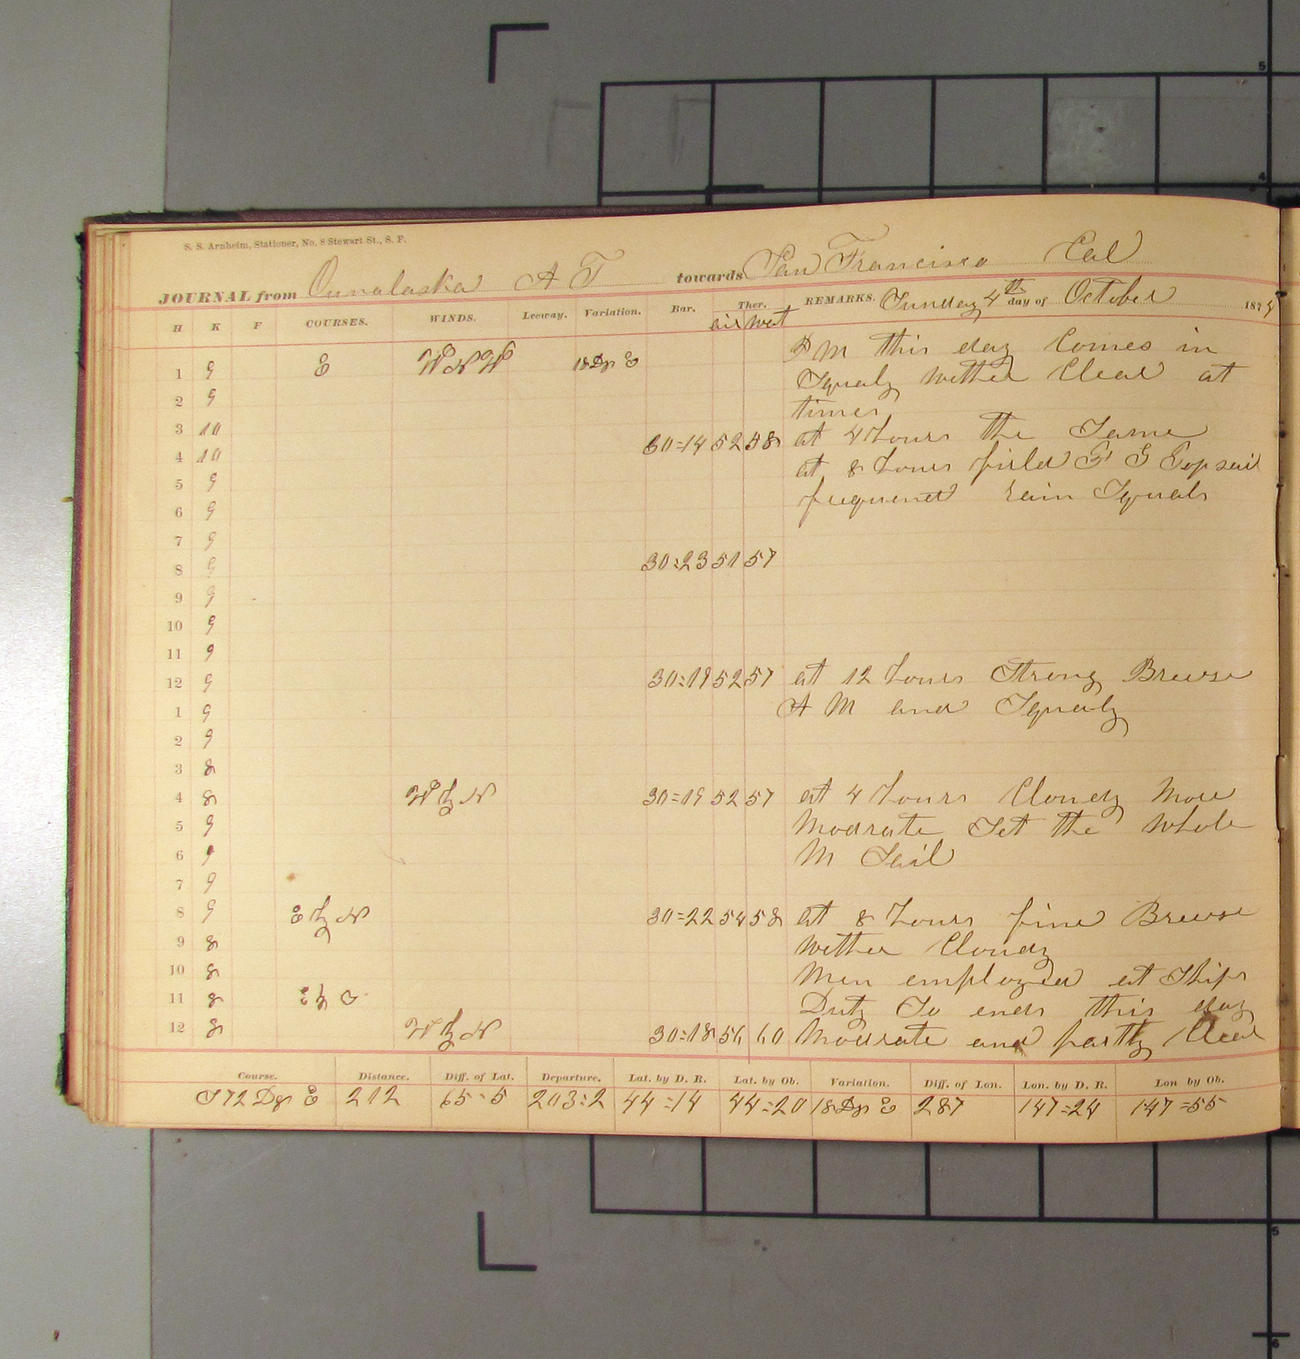 S. S. Arnheim, Stationer, No. 8 Stewart St., S. F.
JOURNAL from Ounalaska A T towards San Francisco Cal
H K F COURSES. WINDS. Leeway. Variation. Bar. Ther. REMARKS. Sunday 4th day of October 1874
air wat
P M this day Comes in
1 9 E WNW 18 Dg E Squaly wether Clear at
2 9 times
3 10 60=14 52 58 at 4 hours the Same
4 10 at 8 hours furld F G Topsail
5 9 frequent rain Squals
6 9
7 9
8 9 30=23 51 57
9 9
10 9
11 9
12 9 30=19 52 57 at 12 hours Strong Breese
1 9 A M and Squaly
2 9
3 8
4 8 W by N 30=19 52 57 at 4 hours Cloudy More
5 9 Modrate Set the Whole
6 9 M Sail
7 9
8 9 E by N 30=22 54 58 at 8 hours fine Breese
9 8 wether Cloudy
10 8 Men employed at Ships
11 8 E by S Duty So ends this day
12 8 W by N 30=18 56 60 Modrate and partly Clear
Course. Distance. Diff. of Lat. Departure. Lat. by D. R. Lat. by Ob. Variation. Diff. of Lon. Lon. by D. R. Lon by Ob.
S 72 Dg E 212 65=5 203=2 44=14 44=20 18 Dg E 287 147=24 147=55
5
4
5
6